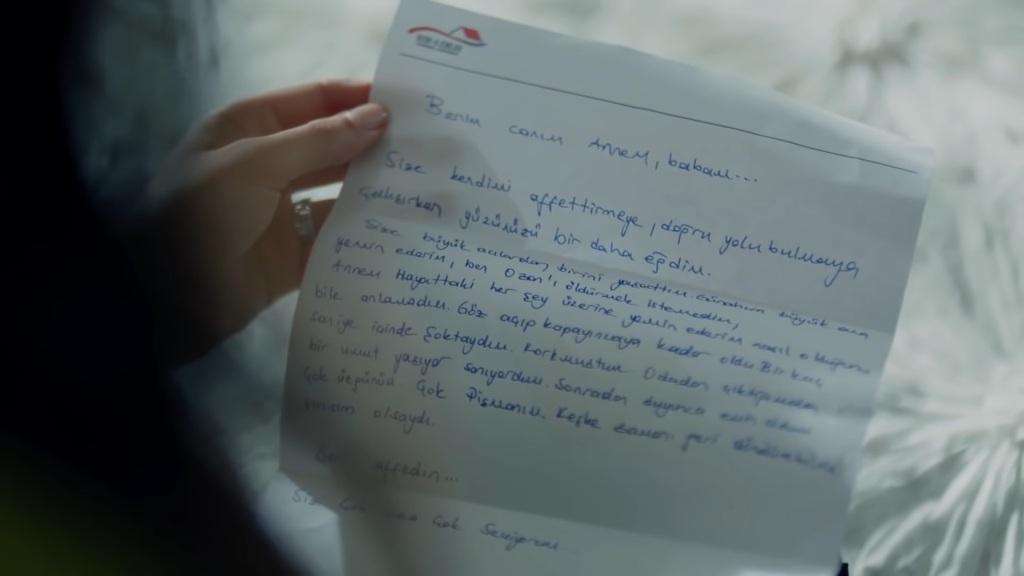 Benim canım Annem, babam...
Size kendimi affettirmeye, doğru yolu bulmaya
Çalışırken yüzünüzü bir daha eğdim.
Size büyük acılardan birini yaşattım. Günahım büyük ama
yemin ederim, ben Ozan'ı öldürmek istemedim,
Annem Hayattaki her şey üzerine yemin ederim nasıl olduğunu
bile anlamadım. Göz açıp kapayıncaya kadar oldu Bir kaç
saniye içinde Şoktaydım. Korkmuştum Odadan çıktığımda
bir umut yaşıyor sanıyordum. Sonradan duyunca
Çok üzgünüm Çok Pişmanım. Keşke zamanı geri
imkanım olsaydı.
Beni affedin...
Sizi Çok ama Çok Seviyorum...